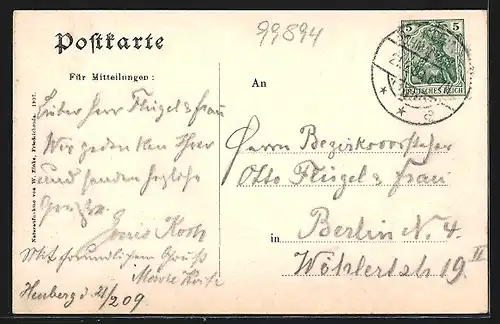 99,894
Postkarte
Für Mitteilungen:
Lieber Herr Flügel & Frau
Wir gedenken Ihrer
und senden herzliche
Grüße
Koch
Mit freundlichem Gruß
Marie Koch
Heuberg d. 21/2 09
Naturaufnahme von W. Ebike, Friedrichroda. 1907.
5 5
DEUTSCHES REICH
An
Herrn Bezirksvorsteher
Otto Flügel & Frau
in Berlin N. 4.
Wöhlertstr 19 II